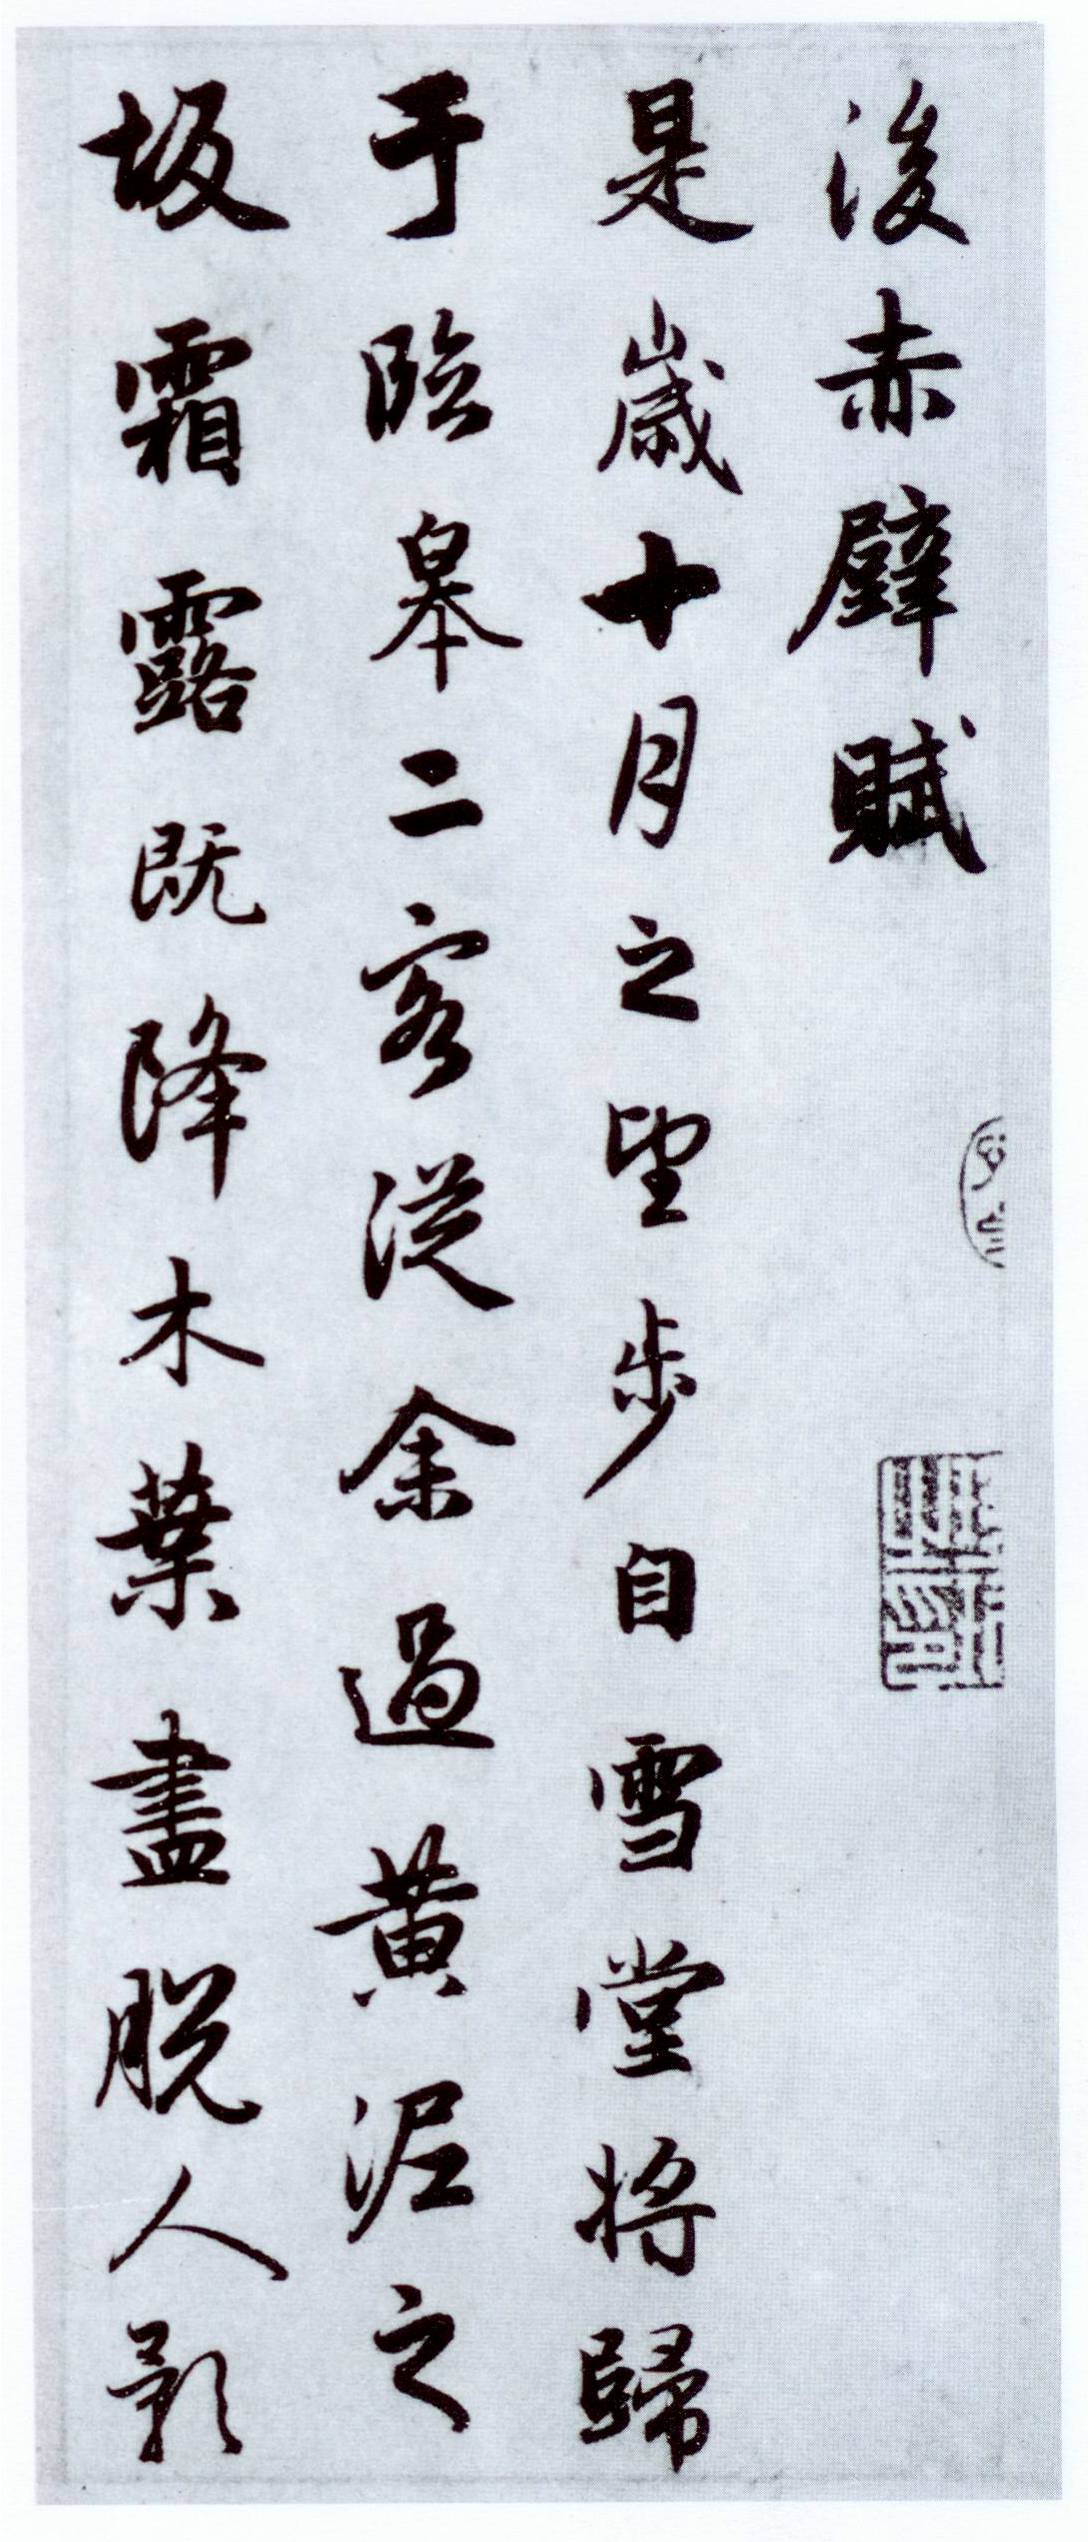 後赤壁賦
是歲十月之望步自雪堂將歸
于臨皋二客從余過黃泥之
坂霜露既降木葉盡脱人影